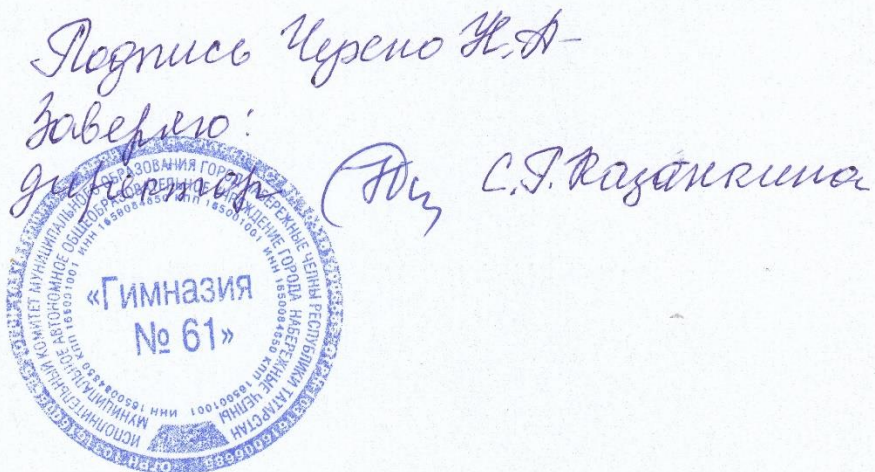 Подпись Черепо Н.А
Заверяю:
директор С.Г. Казанкина
ИСПОЛНИТЕЛЬНЫЙ КОМИТЕТ МУНИЦИПАЛЬНОГО ОБРАЗОВАНИЯ ГОРОД НАБЕРЕЖНЫЕ ЧЕЛНЫ РЕСПУБЛИКИ ТАТАРСТАН
МУНИЦИПАЛЬНОЕ АВТОНОМНОЕ ОБЩЕОБРАЗОВАТЕЛЬНОЕ УЧРЕЖДЕНИЕ ГОРОДА НАБЕРЕЖНЫЕ ЧЕЛНЫ
ИНН 1650084650 КПП 165001001 ИНН 1650084650 КПП 165001001
«Гимназия
№ 61»